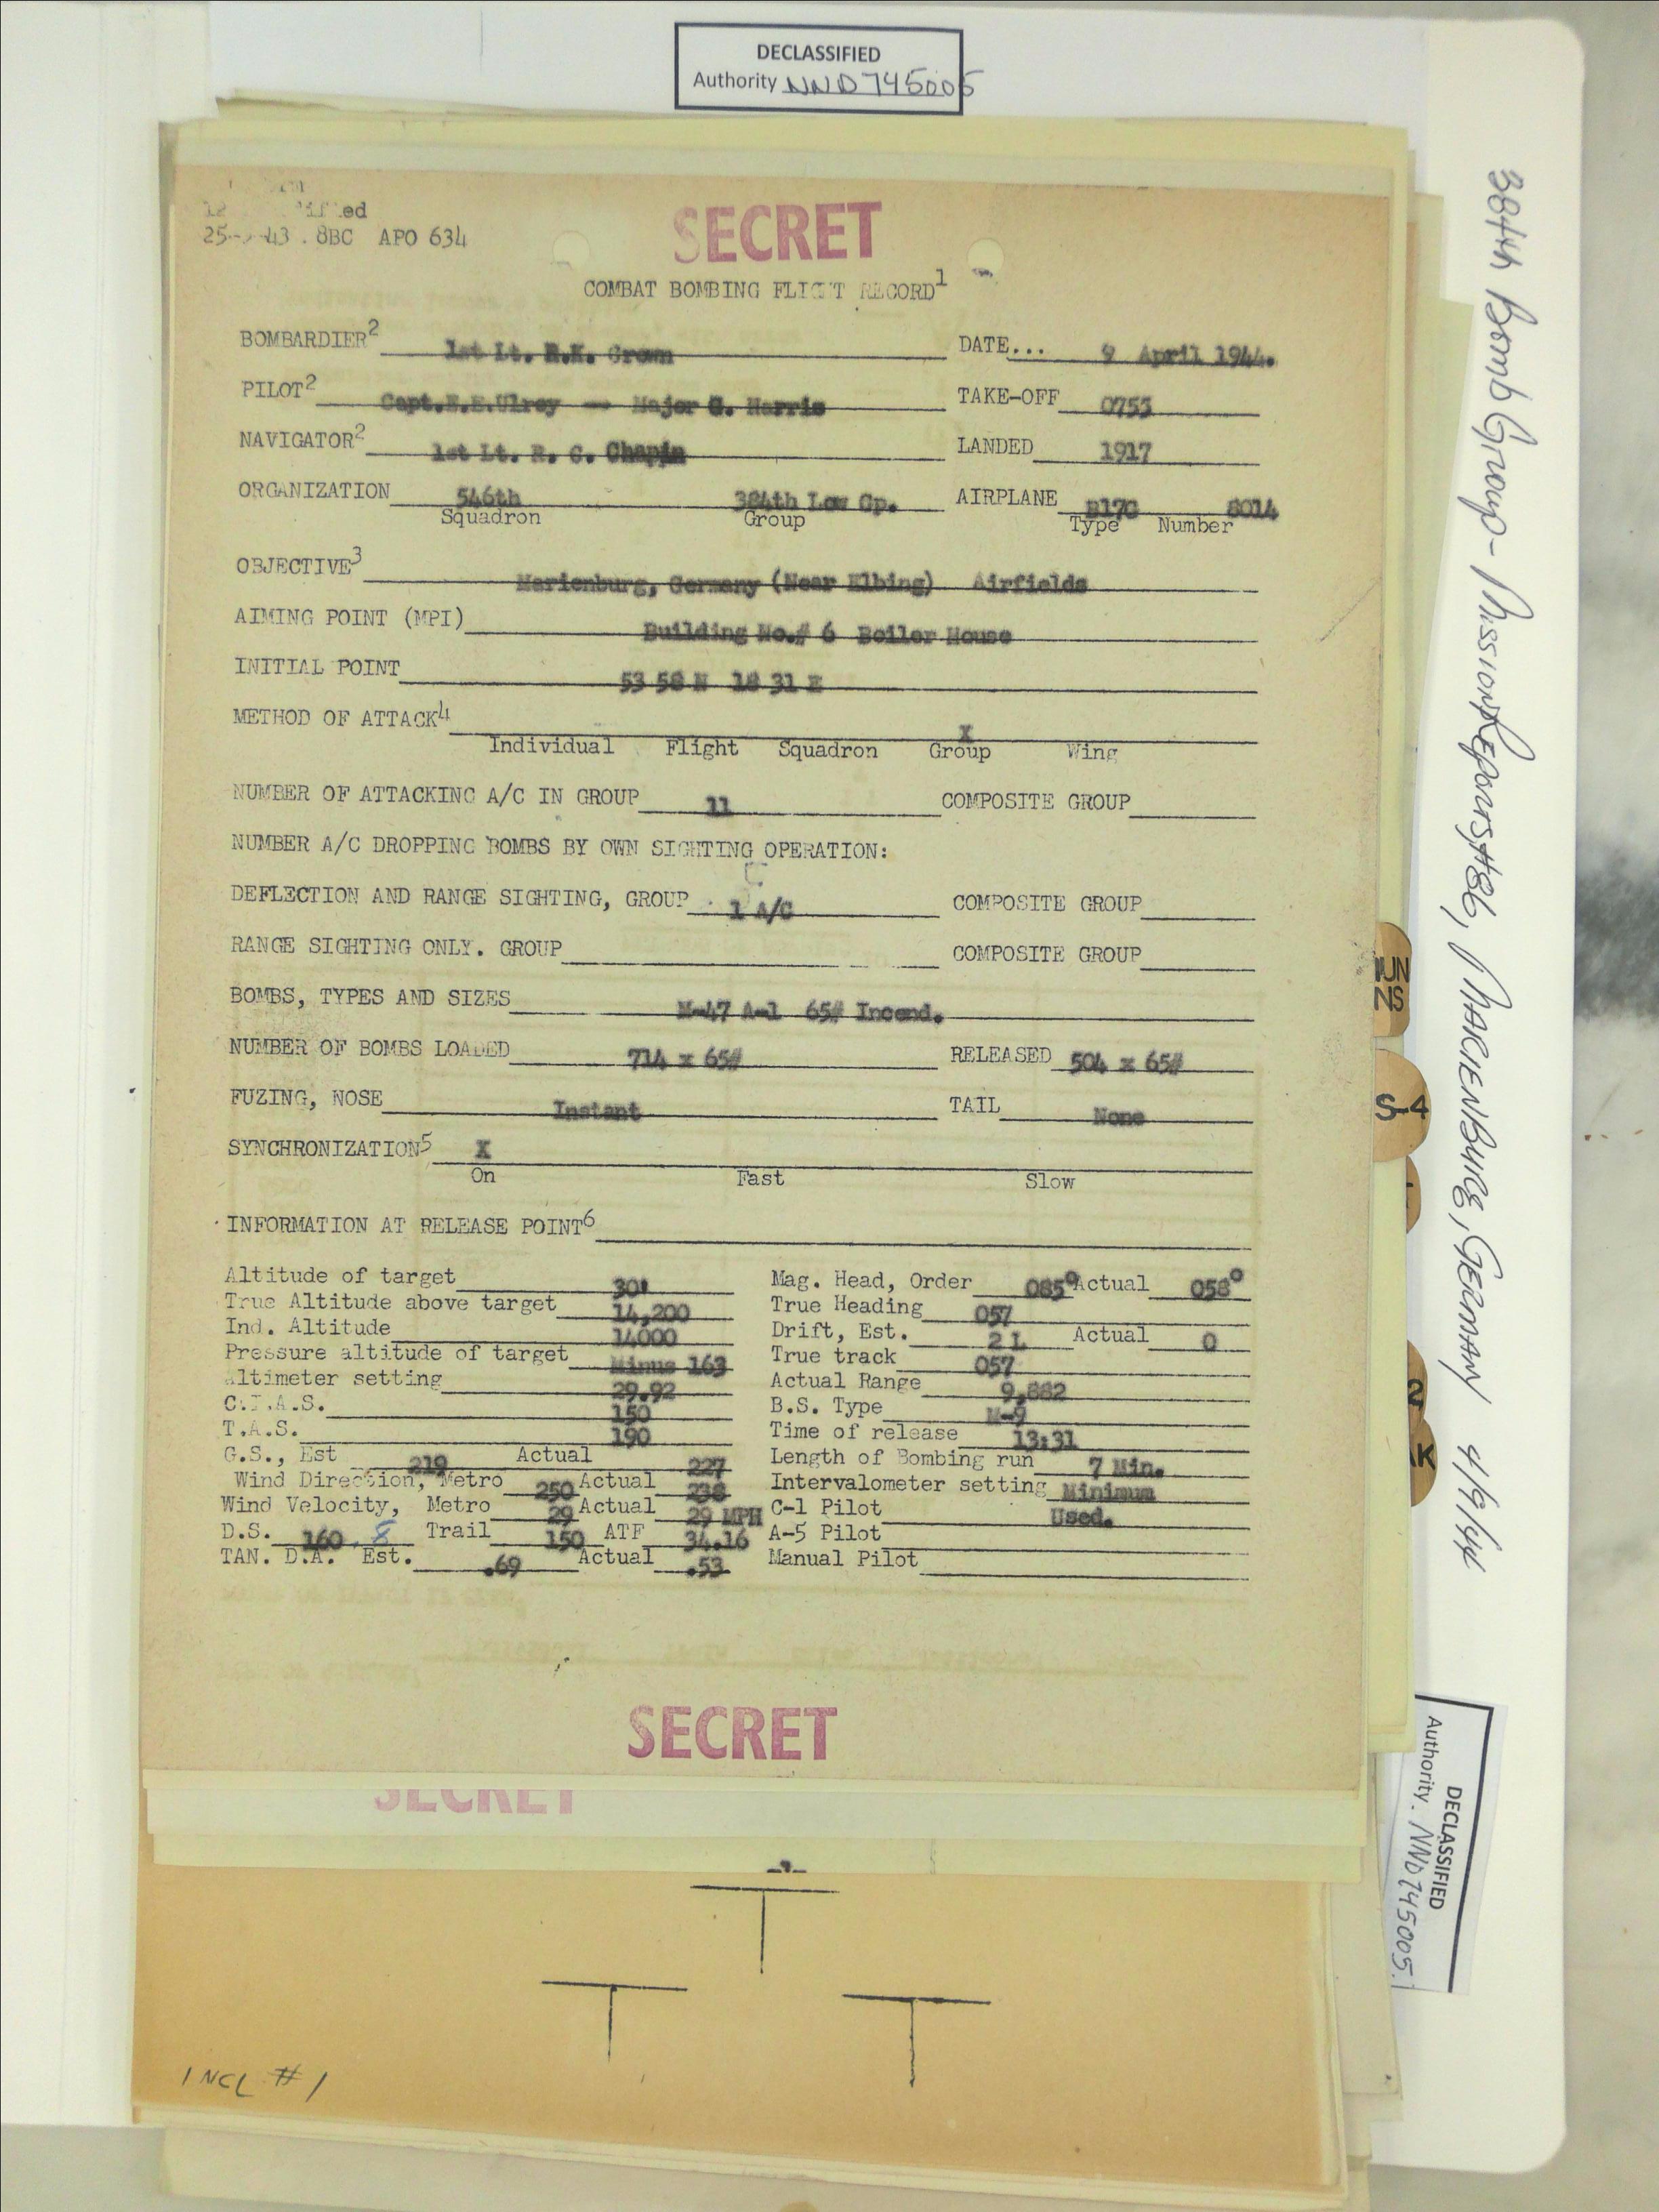 DECLASSIFIED
Authority NND 745005
25- -43 . 8BC APO 634
SECRET
COMBAT BOMBING FLIGHT RECORD1
BOMBARDIER2 1st Lt. R.K. Crown DATE... 9 April 1944.
PILOT2 Capt.E.E.Ulrey — Major G. Harris TAKE-OFF 0753
NAVIGATOR2 1st Lt. R. C. Chapin LANDED 1917
ORGANIZATION 546th 384th Low Gp. AIRPLANE B17G 8014
Squadron Group Type Number
OBJECTIVE3 Marienburg, Germany (Near Elbing) Airfields
AIMING POINT (MPI) Building No.# 6 Boiler House
INITIAL POINT 53 58 N 18 31 E
METHOD OF ATTACK4 X
Individual Flight Squadron Group Wing
NUMBER OF ATTACKING A/C IN GROUP 11 COMPOSITE GROUP
NUMBER A/C DROPPING BOMBS BY OWN SIGHTING OPERATION:
DEFLECTION AND RANGE SIGHTING, GROUP 1 A/C COMPOSITE GROUP
RANGE SIGHTING ONLY. GROUP COMPOSITE GROUP
BOMBS, TYPES AND SIZES M-47 A-1 65# Incend.
NUMBER OF BOMBS LOADED 714 x 65# RELEASED 504 x 65#
FUZING, NOSE Instant TAIL None
SYNCHRONIZATION5 X
On Fast Slow
INFORMATION AT RELEASE POINT6
Altitude of target 30'
True Altitude above target 14,200
Ind. Altitude 14000
Pressure altitude of target Minus 163
Altimeter setting 29.92
C.I.A.S. 150
T.A.S. 190
G.S., Est 219 Actual 227
Wind Direction, Metro 250 Actual 238
Wind Velocity, Metro 29 Actual 29 MPH
D.S. 160.8 Trail 150 ATF 34.16
TAN. D.A. Est. .69 Actual .53
Mag. Head, Order 085° Actual 058°
True Heading 057
Drift, Est. 2 L Actual 0
True track 057
Actual Range 9,882
B.S. Type M-9
Time of release 13:31
Length of Bombing run 7 Min.
Intervalometer setting Minimum
C-1 Pilot Used.
A-5 Pilot
Manual Pilot
SECRET
SECRET
-1-
INCL #1
384th Bomb Group - Mission Reports #86, MARIENBURG, GERMANY 4/9/44
UN
NS
S-4
2
AK
DECLASSIFIED
Authority NND 745005